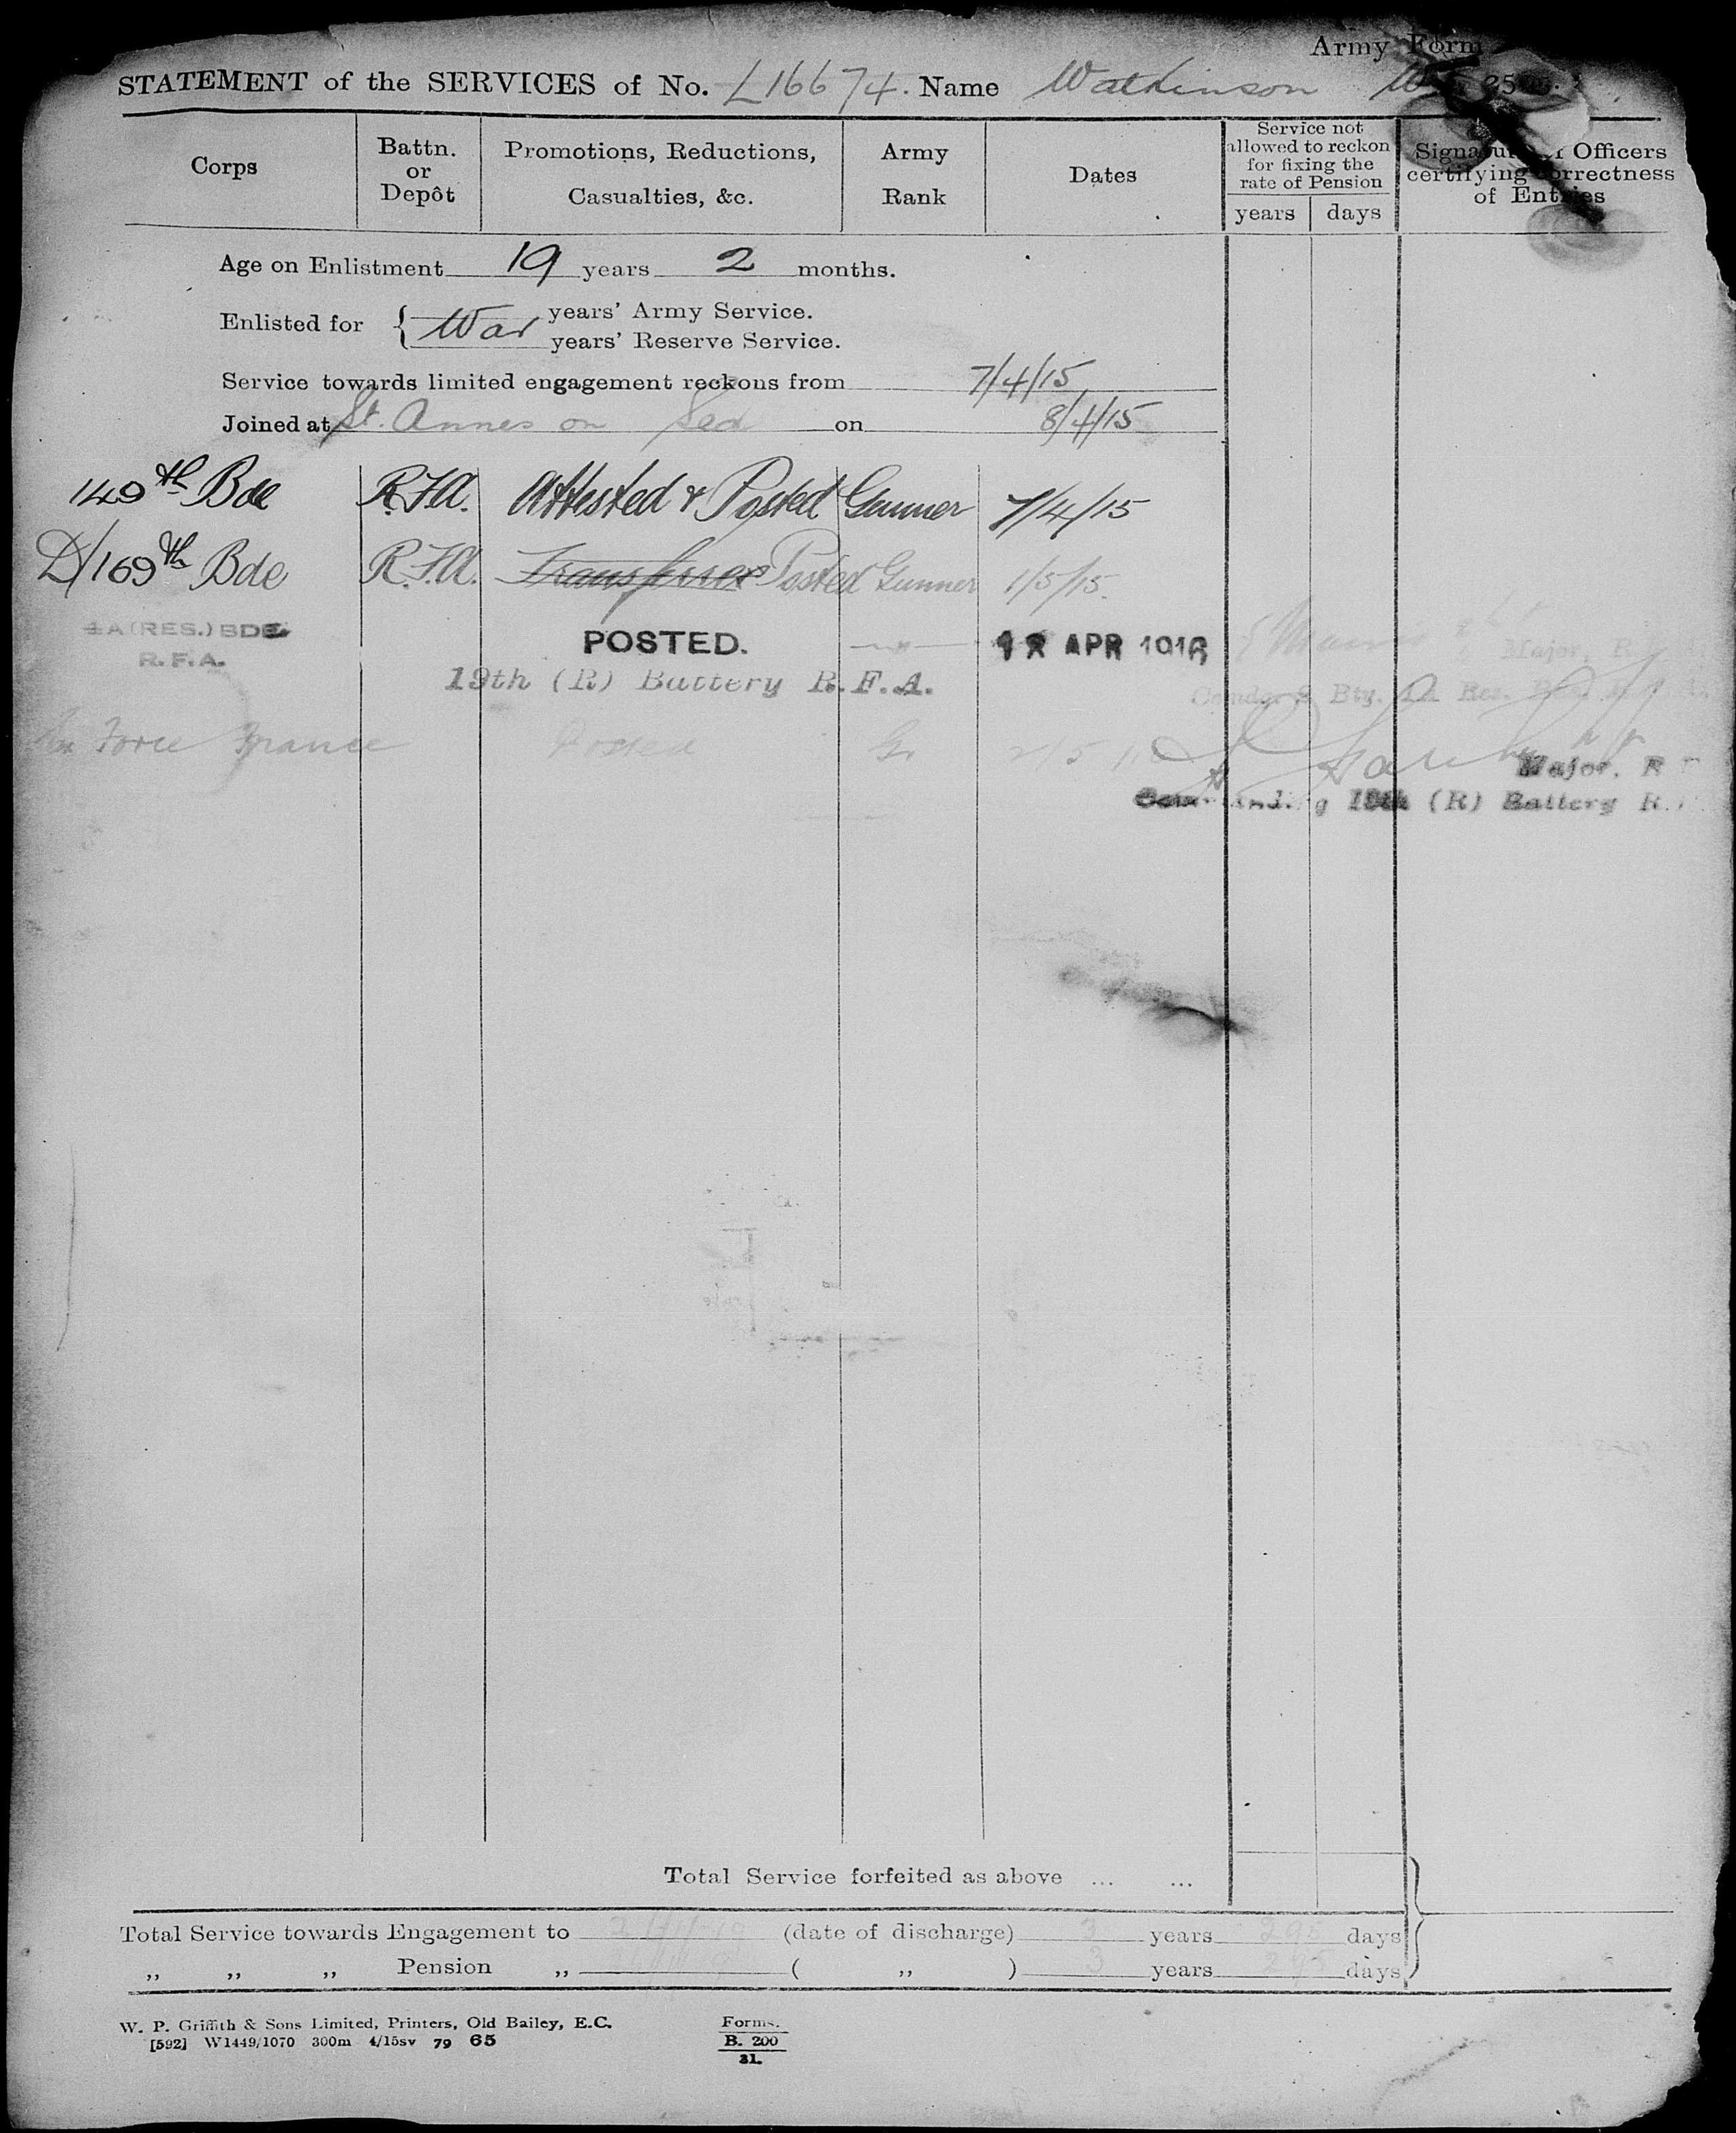 Army Form
STATEMENT of the SERVICES of No. L16674. Name Watkinson W
Corps
Battn. or Depôt
Promotions, Reductions, Casualties, &c.
Army Rank
Dates
Service not allowed to reckon for fixing the rate of Pension
years days
Signature of Officers certifying correctness of Entries
Age on Enlistment 19 years 2 months.
Enlisted for { War years' Army Service.
years' Reserve Service.
Service towards limited engagement reckons from 7/4/15
Joined at St. Annes on Sea on 8/4/15
149th Bde R.F.A. Attested & Posted Gunner 7/4/15
D/169th Bde R.F.A. Transferred Posted Gunner 1/5/15.
A (RES.) BDE. POSTED. APR 1916
R.F.A. Major, R.
19th (R) Battery R.F.A. Bty. Res.
Force France Posted Gr 2/5/
Major. R
Commanding 19th (R) Battery R.
Total Service forfeited as above ... ...
Total Service towards Engagement to (date of discharge) 3 years 295 days
„ „ „ Pension „ ( „ ) 3 years 295 days
W. P. Griffith & Sons Limited, Printers, Old Bailey, E.C.
[592] W1449/1070 300m 4/15sv 79 65
Forms.
B. 200
21.